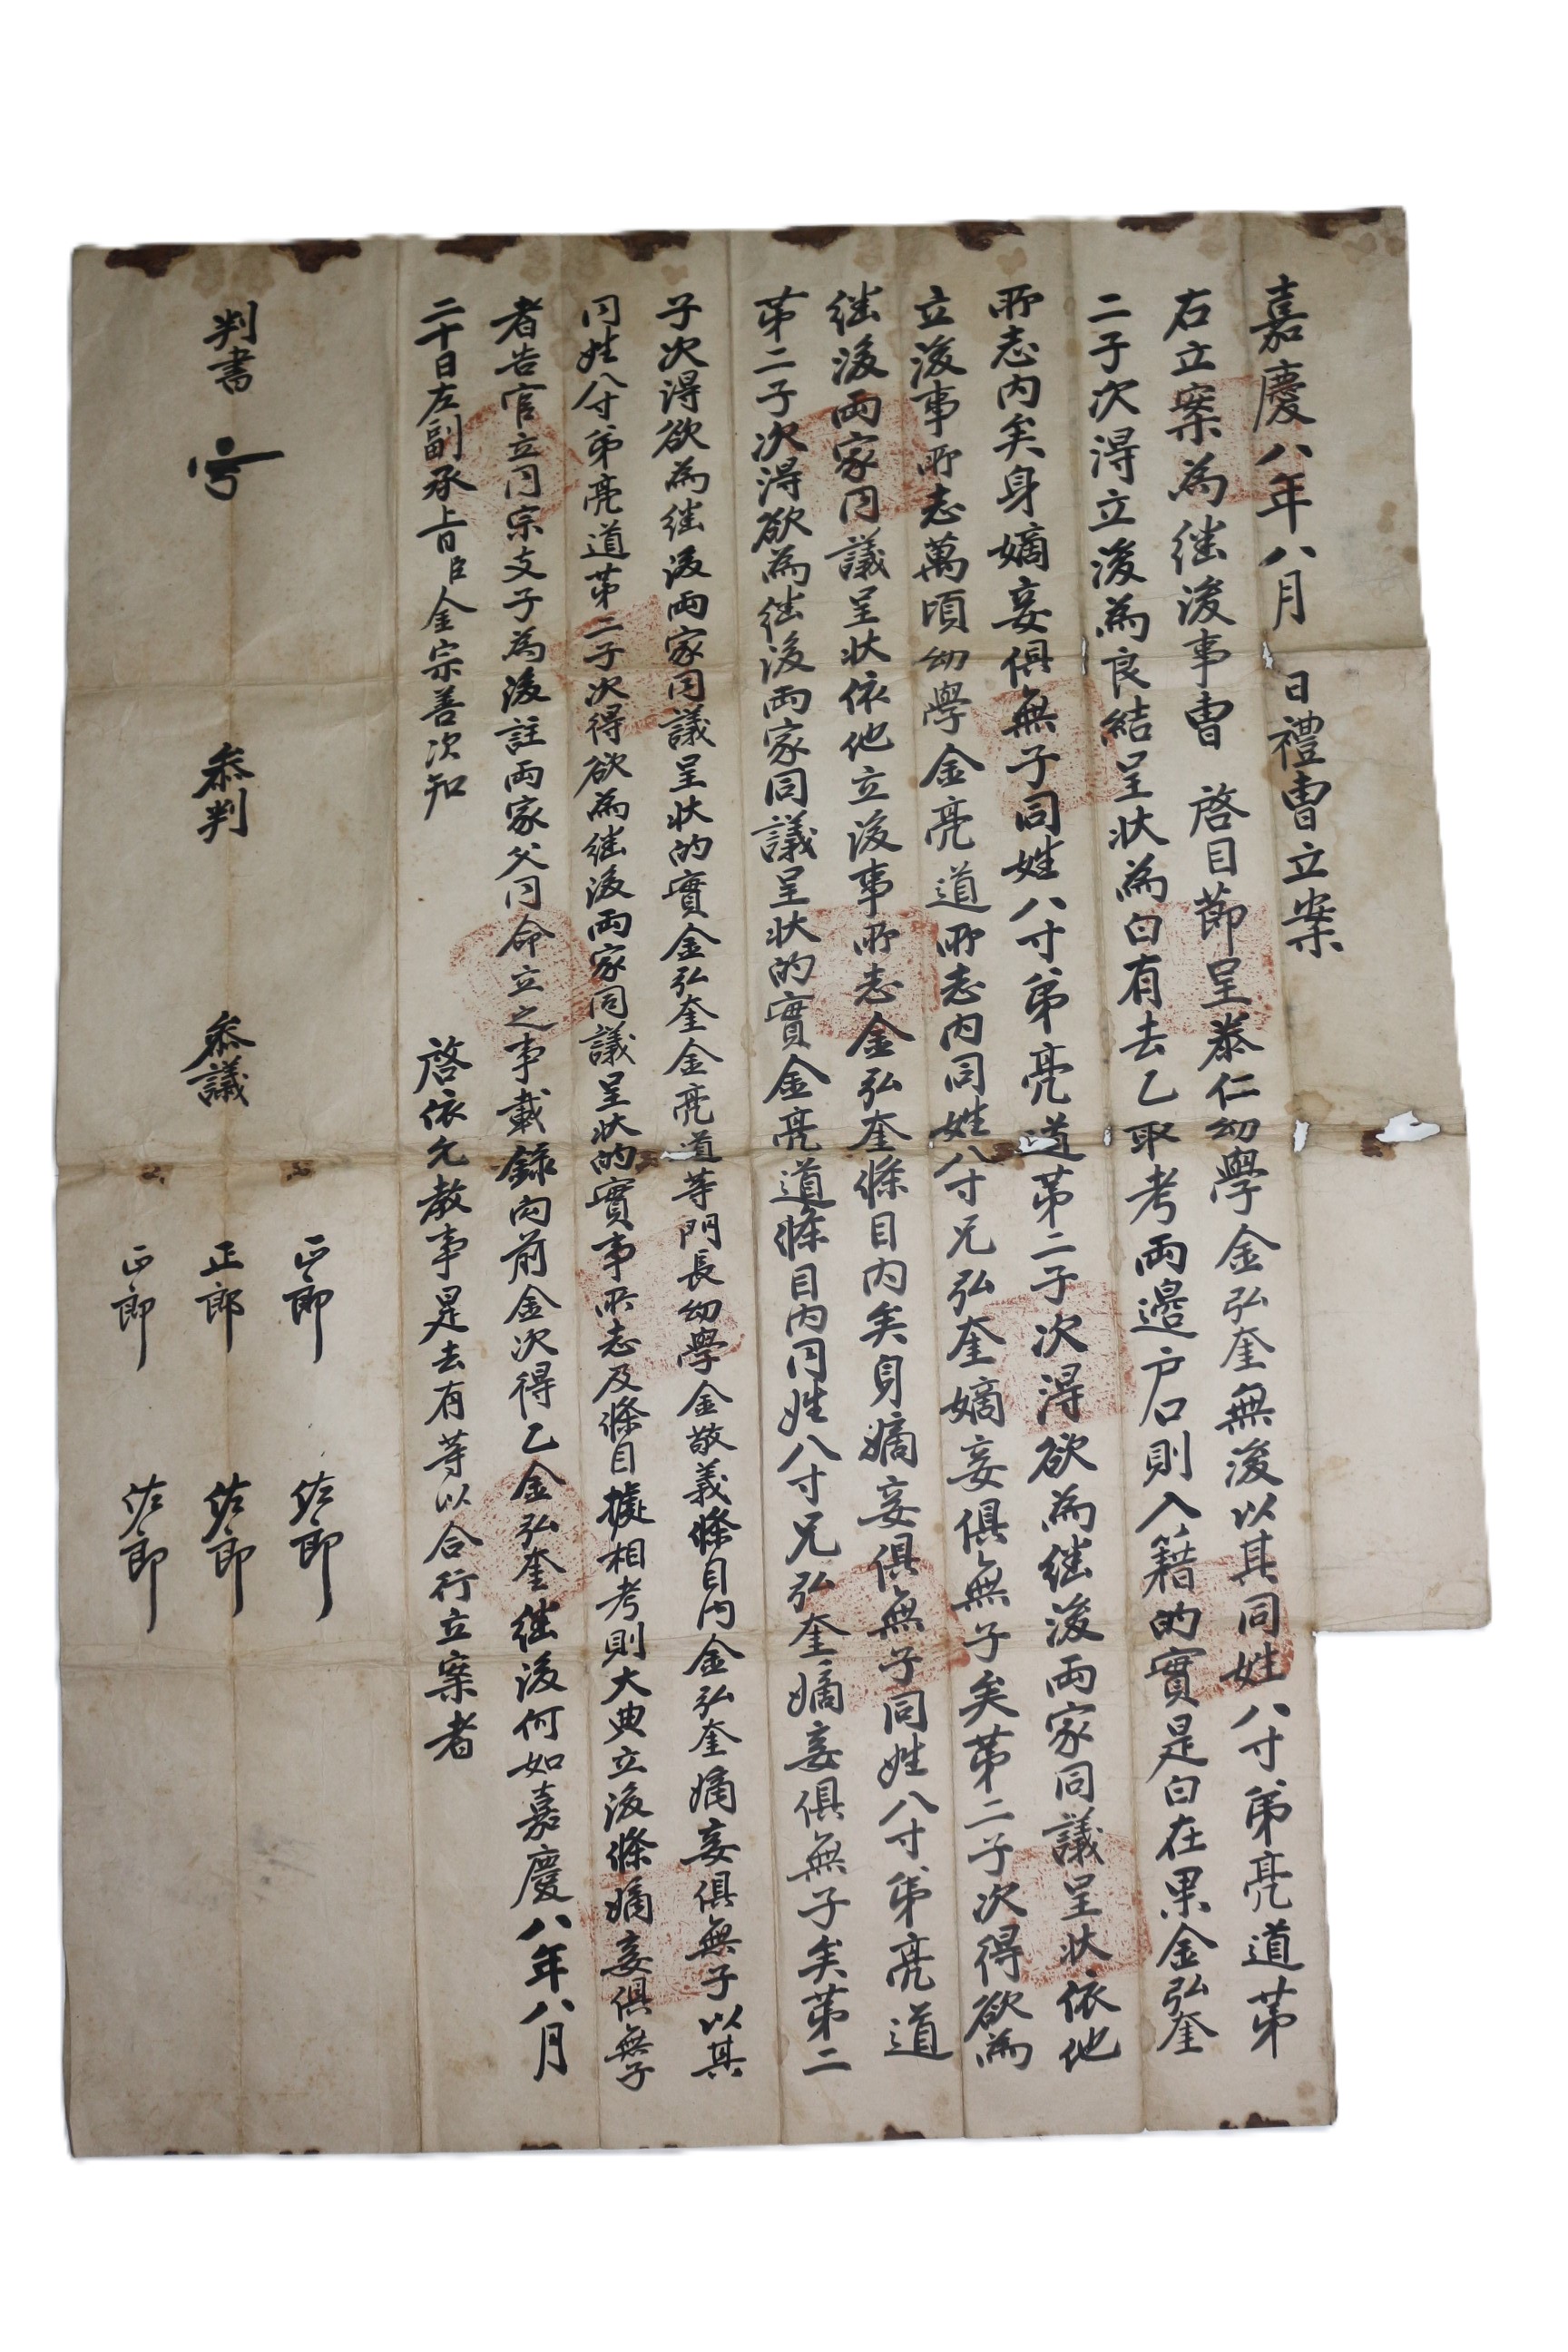 嘉慶八年八月　日禮曹立案
右立案為继後事曹　啓目節呈泰仁幼學金弘奎無後以其同姓八寸弟亮道第
二子次得立後為良結呈狀為白有去乙取考兩邊戶口則入籍的實是白在果金弘奎
所志內矣身嫡妾俱無子同姓八寸弟亮道第二子次得欲為继後兩家同議呈狀依他
立後事所志萬頃幼學金亮道所志內同姓八寸兄弘奎嫡妾俱無子矣第二子次得欲為
继後兩家同議呈狀依他立後事所志金弘奎條目內矣身嫡妾俱無子同姓八寸弟亮道
第二子次得欲為继後兩家同議呈狀的實金亮道條目內同姓八寸兄弘奎嫡妾俱無子矣第二
子次得欲為继後兩家同議呈狀的實金弘奎金亮道等門長幼學金敬義條目內金弘奎嫡妾俱無子以其
同姓八寸弟亮道第二子次得欲為继後兩家同議呈狀的實事所志及條目據相考則大典立後條嫡妾俱無子
者告官立同宗支子為後註兩家父同命立之事載錄內前金次得乙金弘奎继後何如嘉慶八年八月
二十日左副承旨臣金宗善次知　　啓依允敎事是去有等以合行立案者
判書　參判　參議　正郎　佐郎
正郎　佐郎
正郎　佐郎